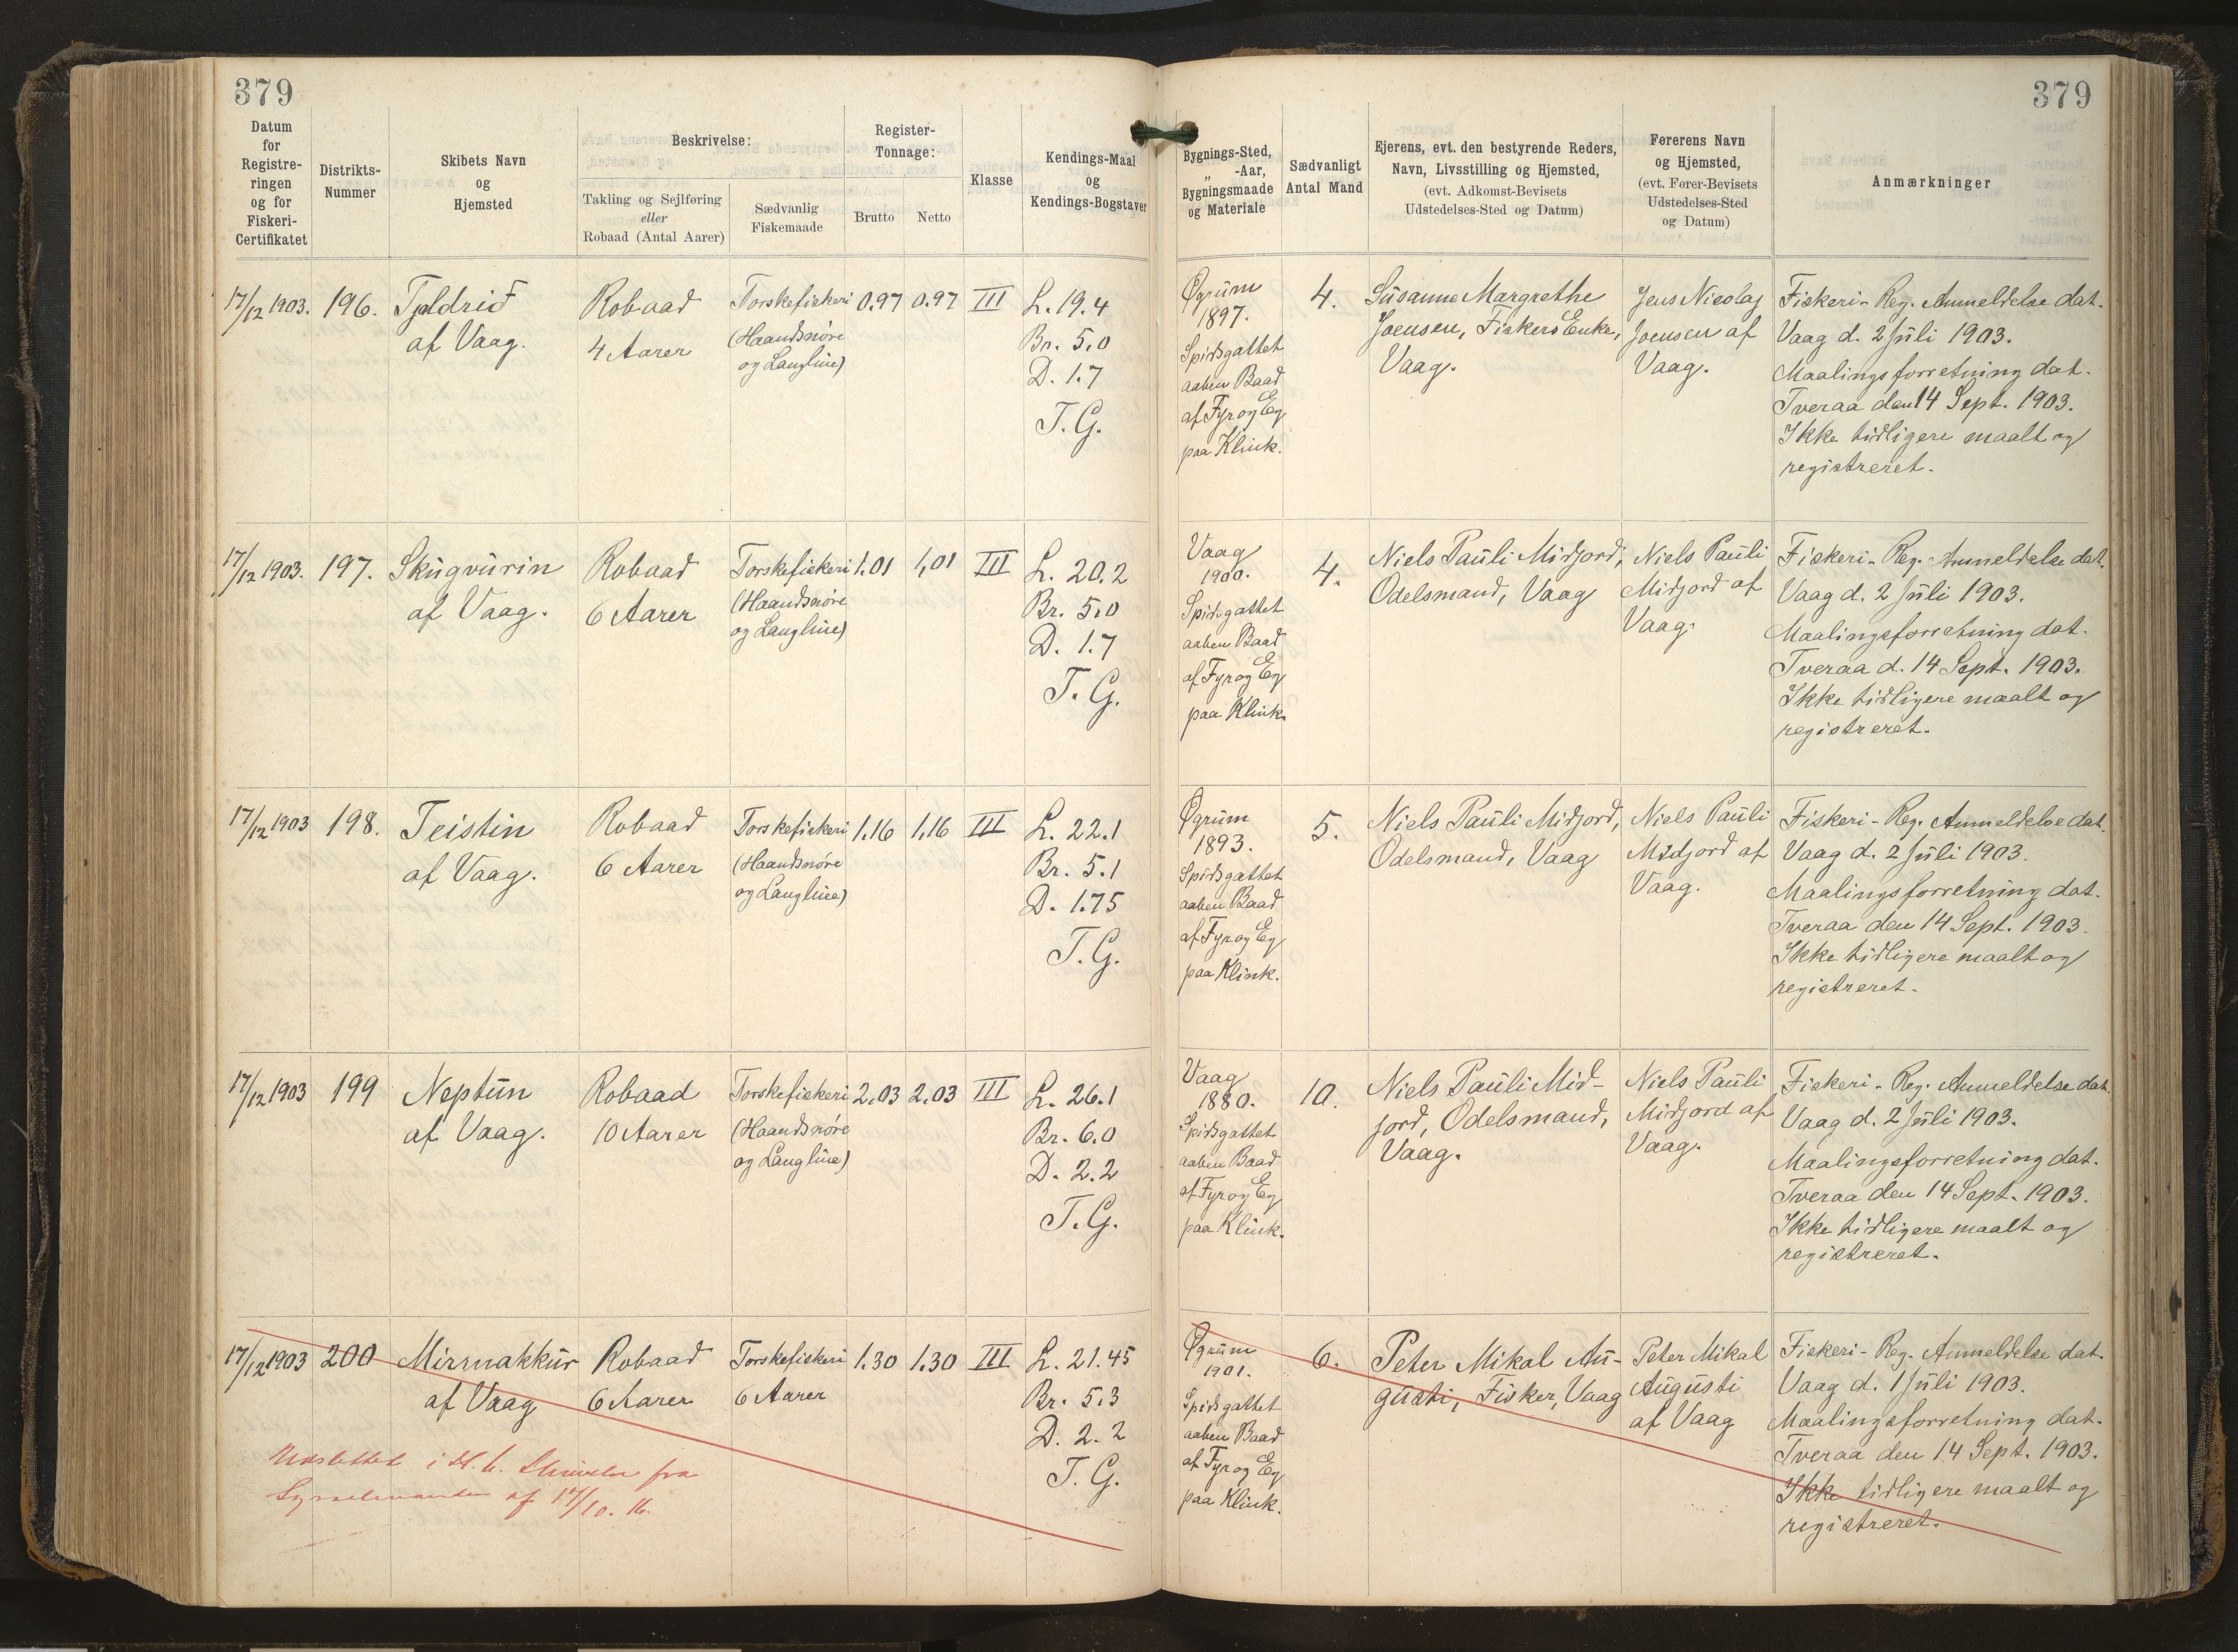 379
379
Datum
for
Registre-
ringen
og for
Fiskeri-
Certifikatet
Distrikts-
Nummer
Skibets Navn
og
Hjemsted
Beskrivelse:
Takling og Sejlføring
eller
Robaad (Antal Aarer)
Sædvanlig
Fiskemaade
Register-
Tonnage:
Brutto
Netto
Klasse
Kendings-Maal
og
Kendings-Bogstaver
Bygnings-Sted,
„ -Aar,
Bygningsmaade
og Materiale
Sædvanligt
Antal Mand
Ejerens, evt. den bestyrende Reders,
Navn, Livsstilling og Hjemsted,
(evt. Adkomst-Bevisets
Udstedelses-Sted og Datum)
Førerens Navn
og Hjemsted,
(evt. Fører-Bevisets
Udstedelses-Sted
og Datum)
Anmærkninger
17/12 1903.
196.
Tjaldrið
af Vaag.
Robaad
4 Aarer
Torskefiskeri
(Haandsnöre
og Langline)
0.97
0.97
III
L. 19.4
Br. 5.0
D. 1.7
T. G.
Øgrum
1897.
Spidsgattet
aaben Baad
af Fyr og Eg
paa Klink.
4.
Susanne Margrethe
Joensen, Fiskers Enke,
Vaag.
Jens Nicolaj
Joensen af
Vaag.
Fiskeri-Reg. Anmeldelse dat.
Vaag d. 2 Juli 1903.
Maalingsforretning dat.
Tveraa den 14 Sept. 1903.
Ikke tidligere maalt og
registreret.
17/12 1903.
197.
Skúgvurin
af Vaag.
Robaad
6 Aarer
Torskefiskeri
(Haandsnöre
og Langline)
1.01
1,01
III
L. 20.2
Br. 5.0
D. 1.7
T. G.
Vaag
1900.
Spidsgattet
aaben Baad
af Fyr og Eg
paa Klink.
4.
Niels Pauli Midjord,
Odelsmand, Vaag
Niels Pauli
Midjord af
Vaag.
Fiskeri-Reg. Anmeldelse dat.
Vaag d. 2 Juli 1903.
Maalingsforretning dat.
Tveraa d. 14 Sept. 1903.
Ikke tidligere maalt og
registreret.
17/12 1903
198.
Teistin
af Vaag.
Robaad
6 Aarer
Torskefiskeri
(Haandsnöre
og Langline)
1.16
1,16
III
L. 22.1
Br. 5.1
D. 1.75
T. G.
Øgrum
1893.
Spidsgattet
aaben Baad
af Fyr og Eg
paa Klink.
5.
Niels Pauli Midjord,
Odelsmand, Vaag
Niels Pauli
Midjord af
Vaag.
Fiskeri-Reg. Anmeldelse dat.
Vaag d. 2 Juli 1903.
Maalingsforretning dat.
Tveraa den 14 Sept. 1903.
Ikke tidligere maalt og
registreret.
17/12 1903
199
Neptun
af Vaag.
Robaad
10 Aarer
Torskefiskeri
(Haandsnöre
og Langline)
2.03
2.03
III
L. 26.1
Br. 6.0
D. 2.2
T. G.
Vaag
1880.
Spidsgattet
aaben Baad
af Fyr og Eg
paa Klink.
10.
Niels Pauli Mid-
jord, Odelsmand,
Vaag.
Niels Pauli
Midjord af
Vaag.
Fiskeri-Reg. Anmeldelse dat.
Vaag d. 2 Juli 1903.
Maalingsforretning dat.
Tveraa den 14 Sept. 1903.
Ikke tidligere maalt og
registreret.
17/12 1903
200
Mirmakkur
af Vaag
Robaad
6 Aarer
Torskefiskeri
6 Aarer
1.30
1.30
III
L. 21.45
Br. 5.3
D. 2.2
T. G.
Udslettet i H. t. Skrivelse fra
Sysselmanden af 17/10. 16.
Øgrum
1901.
Spidsgattet
aaben Baad
af Fyr og Eg
paa Klink.
6.
Peter Mikal Au-
gusti, Fisker, Vaag
Peter Mikal
Augusti
af Vaag
Fiskeri-Reg. Anmeldelse dat.
Vaag d. 1 Juli 1903.
Maalingsforretning dat.
Tveraa den 14 Sept. 1903.
Ikke tidligere maalt og
registreret.